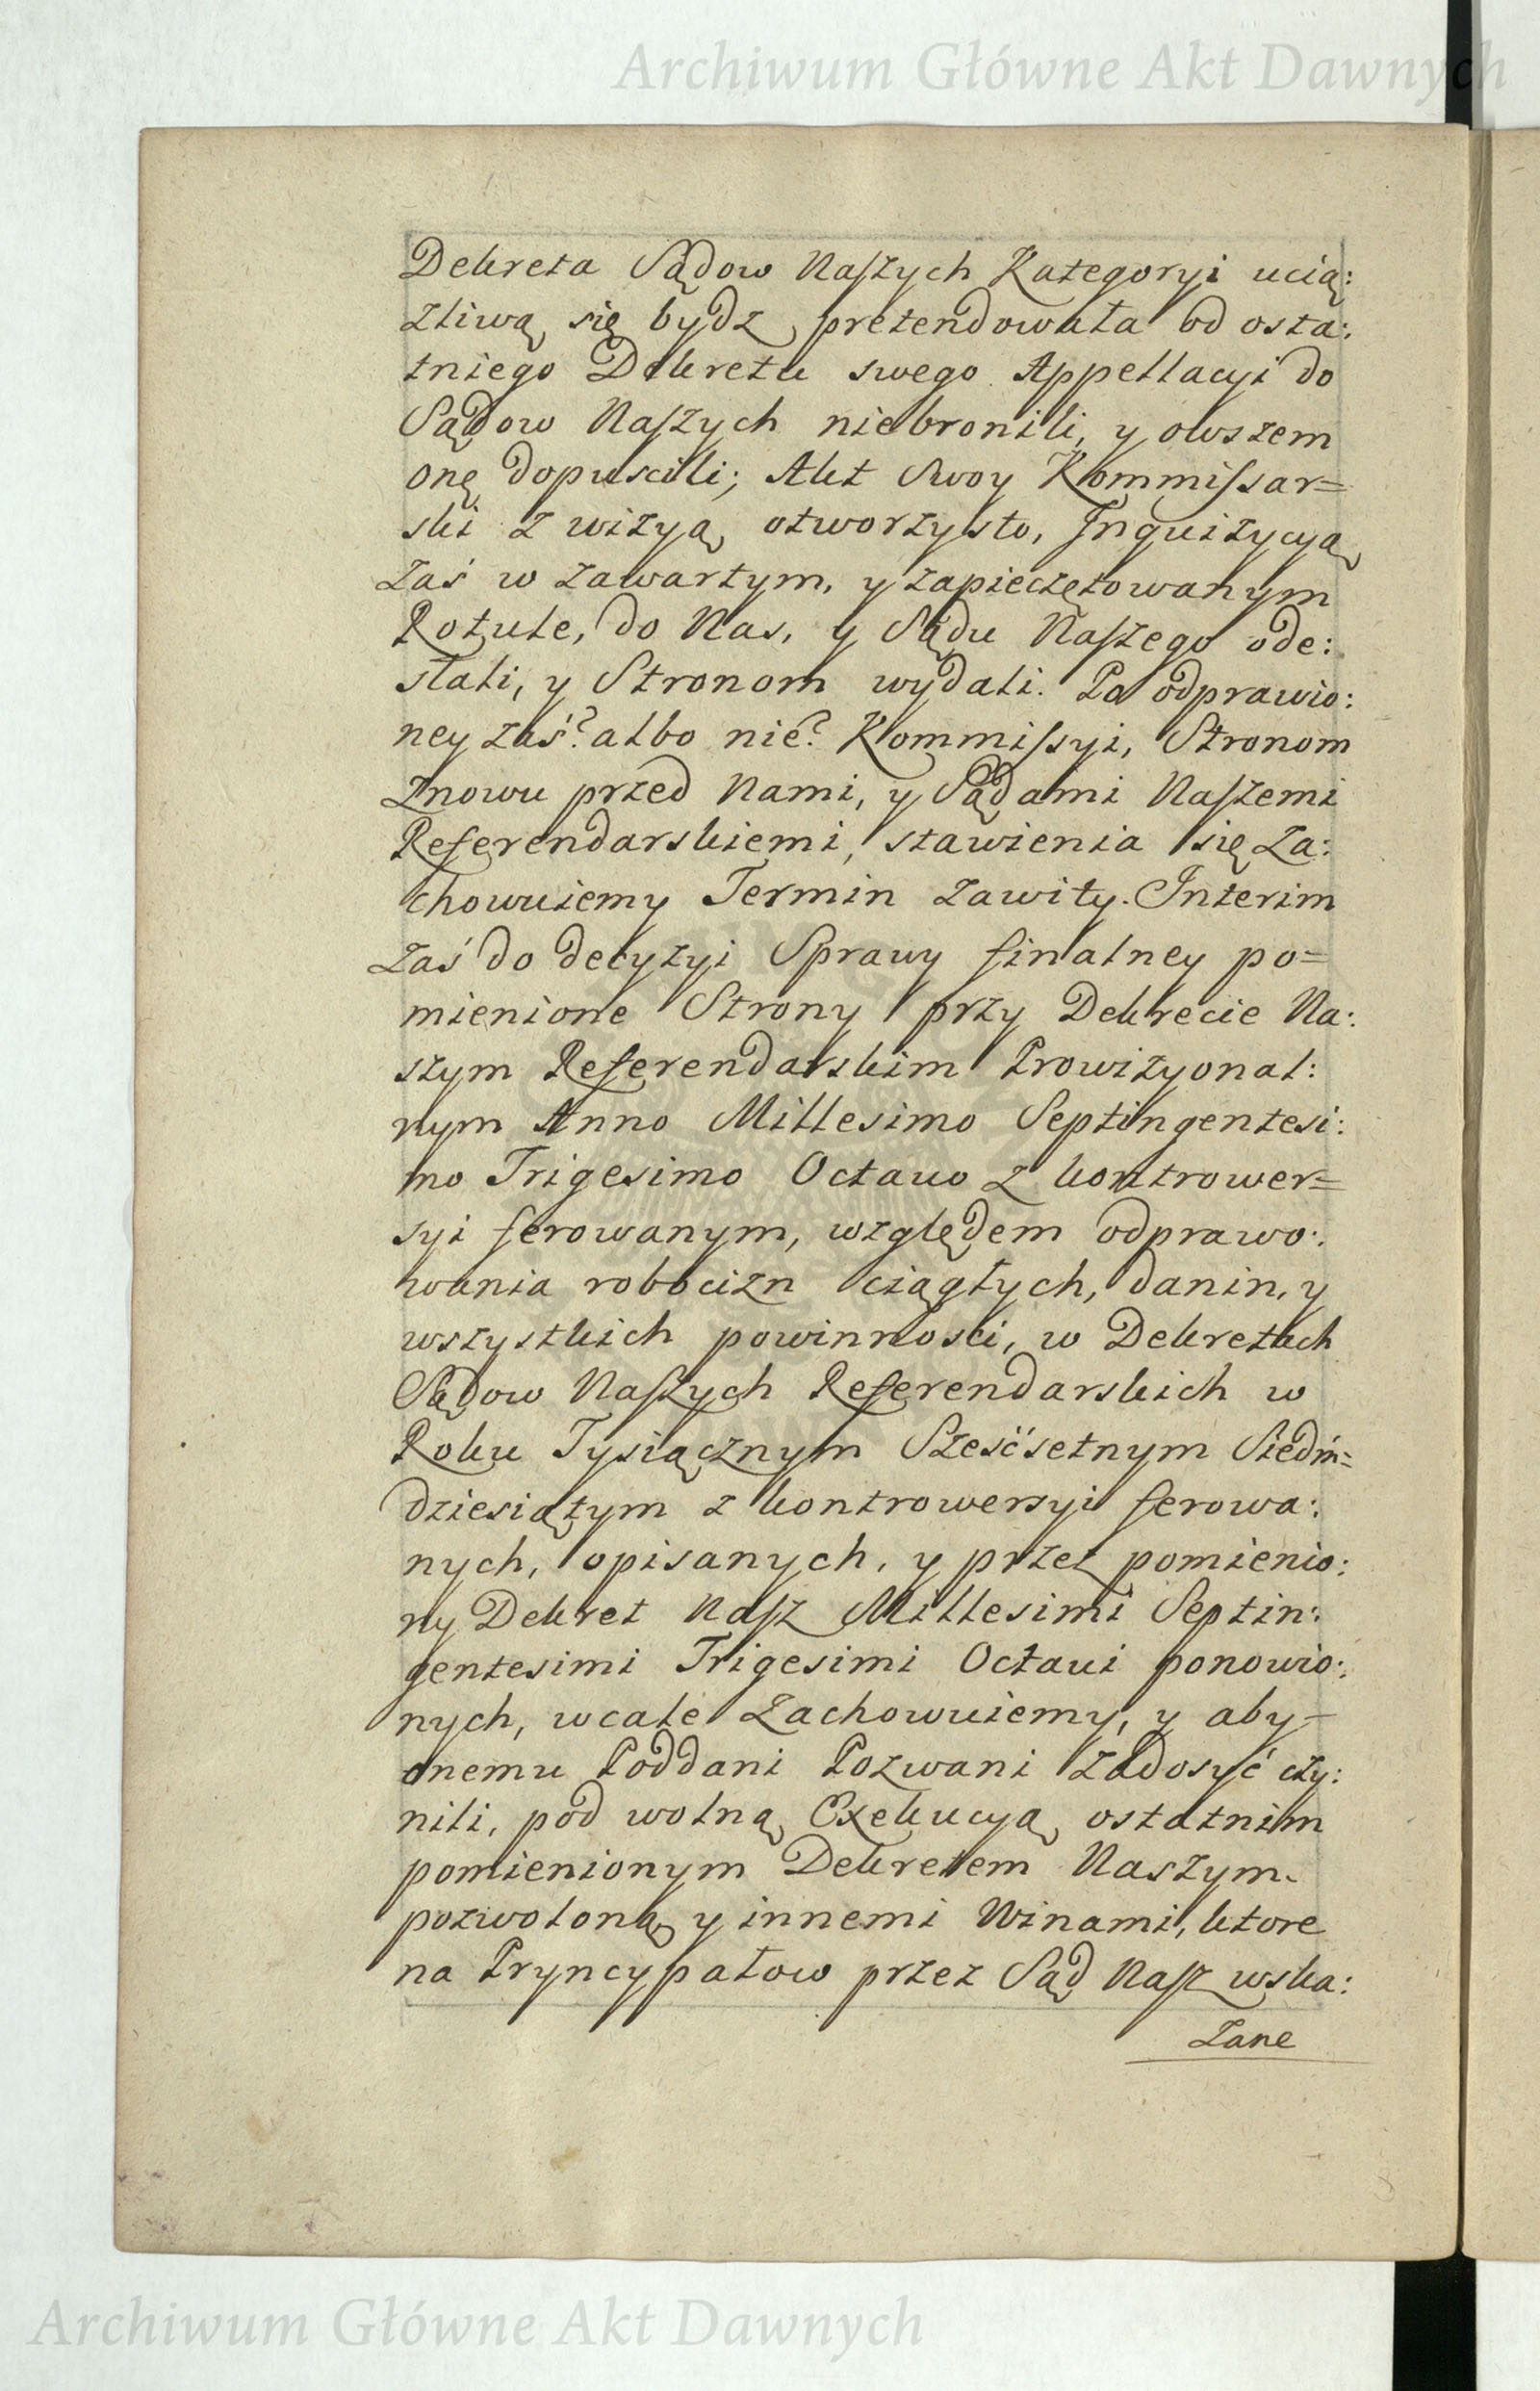 Archiwum Główne Akt Dawnych
Dekreta Sądow Naſzych Kategoryi ucią:
zliwą się bydz pretendowała od osta:
tniego Dekretu swego Appellacyi do
Sądow Naſzych niebronili, y owszem
onę dopuscili; Akt Swoy Kommiſsar=
ski z wizyą otworzysto, Inquizycyą
zaś w zawartym, y zapieczętowanym
Rotule, do Nas, y Sądu Naſzego ode:
słali, y Stronom wydali. Po odprawio:
ney zaś? albo nie? Kommiſsyi, Stronom
znowu przed Nami, y Sądami Naſzemi
Referendarskiemi, stawienia się za:
chowuiemy Termin zawity. Interim
zaś do decyzyi Sprawy finalney po=
mienione Strony przy Dekrecie Na:
szym Referendarskim Prowizyonal:
nym Anno Millesimo Septingentesi:
mo Trigesimo Octauo z kontrower=
syi ferowanym, względem odprawo:
wania robocizn ciągłych, danin, y
wszystkich powinnosci, w Dekretach
Sądow Naſzych Referendarskich w
Roku Tysiącznym Sześćsetnym Siedm=
dziesiątym z kontrowersyi ferowa:
nych, opisanych, y przez pomienio:
ny Dekret Naſz Millesimi Septin:
gentesimi Trigesimi Octaui ponowio:
nych, wcale zachowuiemy, y aby-
onemu Poddani Pozwani zadosyć czy:
nili, pod wolną Exekucyą ostatnim
pomienionym Dekretem Naszym
pozwoloną y innemi Winami, ktore
na Pryncypałow przez Sąd Naſz wska:
zane
Archiwum Główne Akt Dawnych